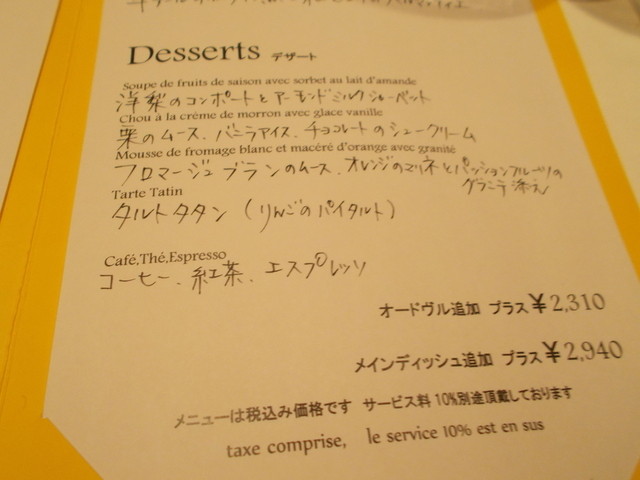 Desserts デザート
Soupe de fruits de saison avec sorbet au lait d'amande
洋梨のコンポートとアーモンドミルクシャーベット
Chou à la crème de morron avec glace vanille
栗のムース、バニラアイス、チョコレートのシュークリーム
Mousse de fromage blanc et macéré d'orange avec granité
フロマージュブランのムース、オレンジのマリネとパッションフルーツの
グラニテ添え
Tarte Tatin
タルトタタン (りんごのパイタルト)
Café,Thé,Espresso
コーヒー、紅茶、エスプレッソ
オードヴル追加 プラス¥2,310
メインディッシュ追加 プラス¥2,940
メニューは税込み価格です サービス料 10%別途頂戴しております
taxe comprise, le service 10% est en sus